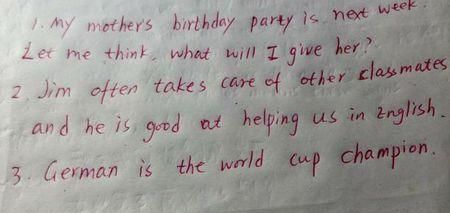 1. My mother's birthday party is next week.
Let me think, what will I give her?
2. Jim often takes care of other classmates
and he is good at helping us in English.
3. German is the world cup champion.